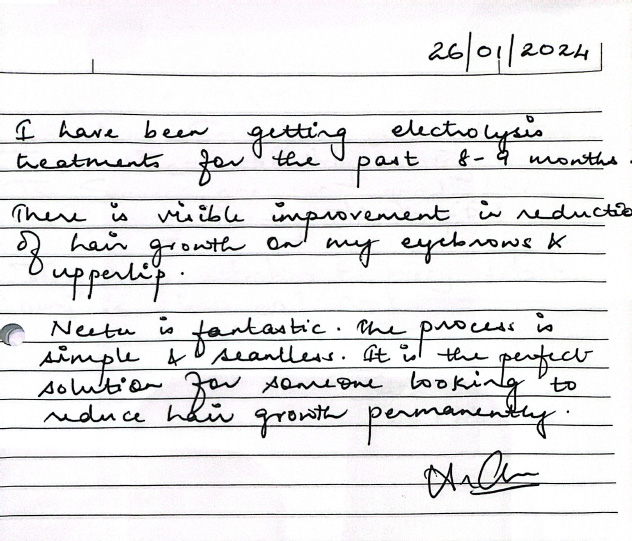 26/01/2024
I have been getting electrolysis
treatments for the past 8-9 months.
There is visible improvement in reductio
of hair growth on my eyebrows &
upperlip.
Neetu is fantastic. The process is
simple & seamless. It is the perfect
solution for someone looking to
reduce hair growth permanently.